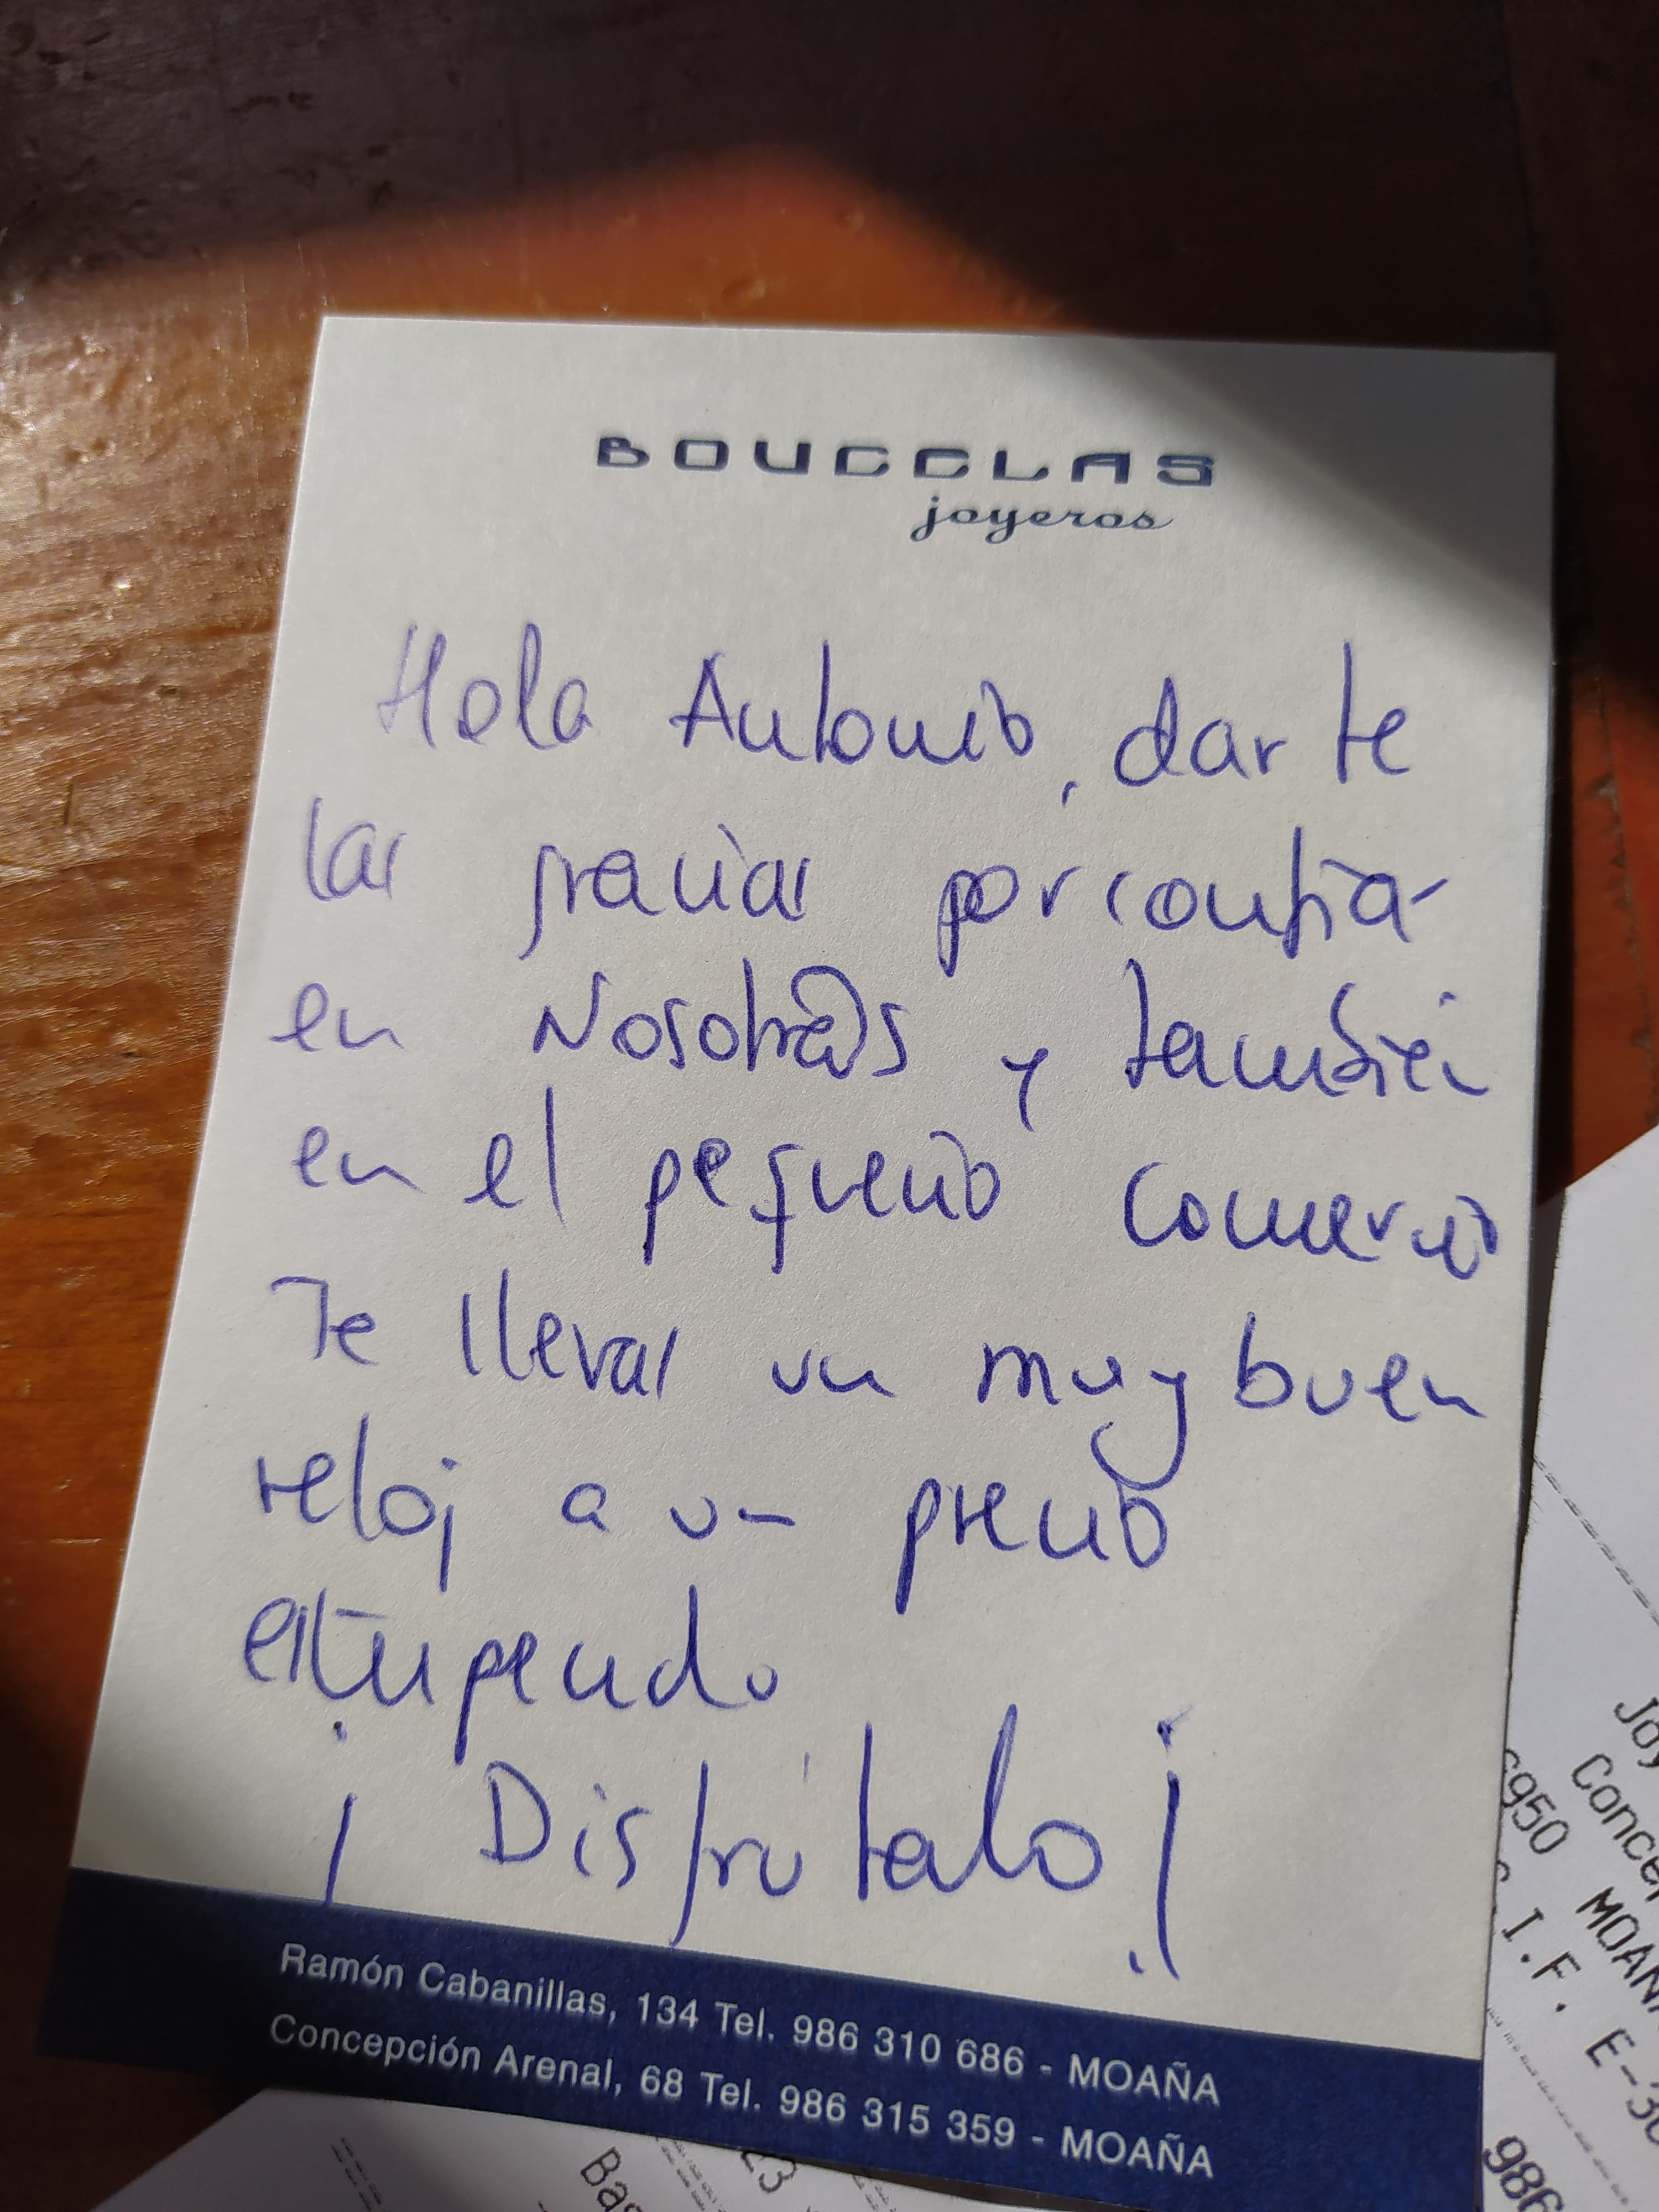 BOUCCLAS
joyeros
Hola Antonio, darte
las gracias por confiar
en Nosotr@s y también
en el pequeño comercio
Te llevas un muy buen
reloj a un precio
estupendo
¡Disfrútalo¡
Ramón Cabanillas, 134 Tel. 986 310 686 - MOAÑA
Concepción Arenal, 68 Tel. 986 315 359 - MOAÑA
Joy
Concep
6950 MOAÑA
C.I.F. E-36
986
Bas
23